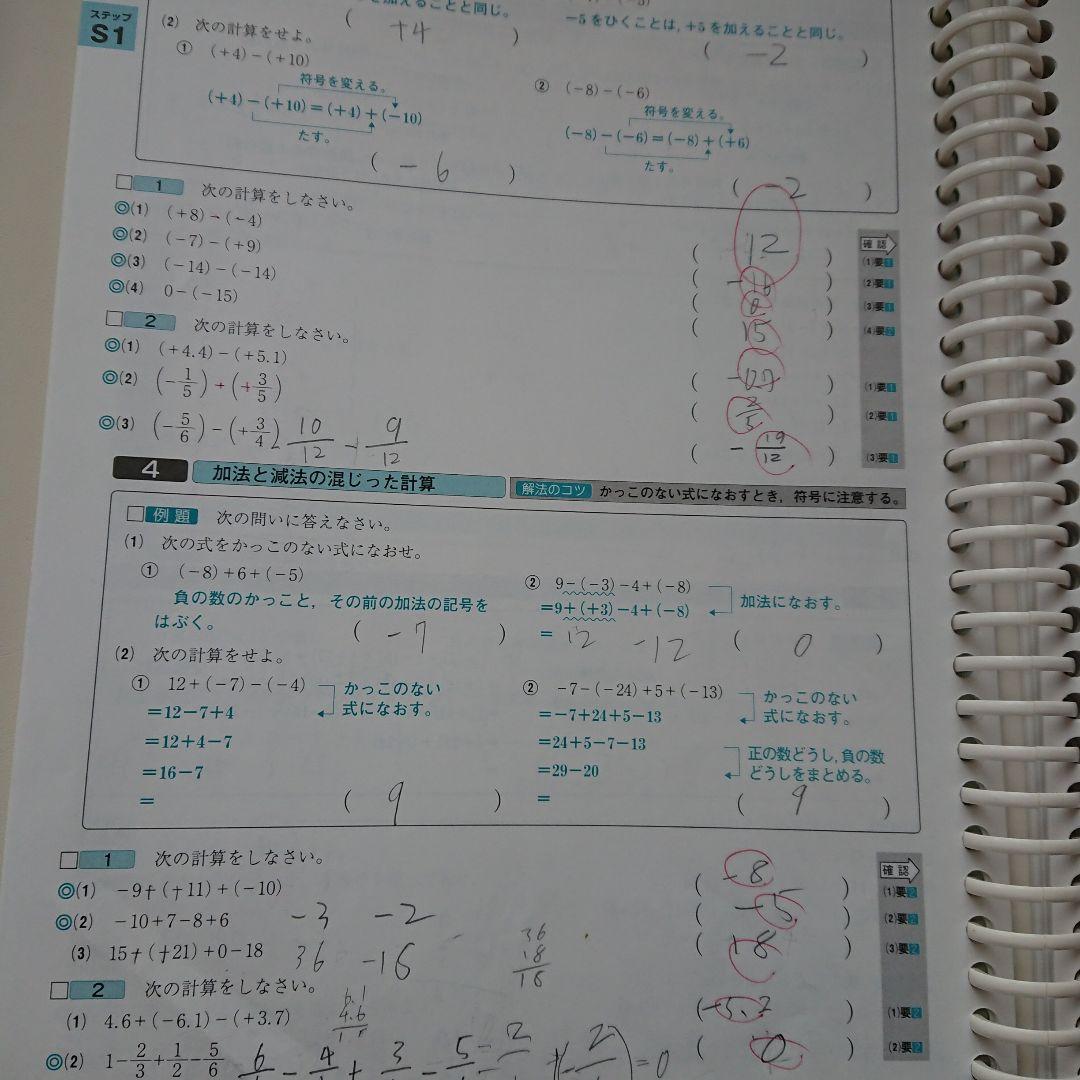 ステップ
S1
加えることと同じ。
-5をひくことは, +5を加えることと同じ。
( +4 )
( -2 )
(2) 次の計算をせよ。
① (+4)-(+10)
符号を変える。
(+4)-(+10)=(+4)+(-10)
たす。
( -6 )
② (-8)-(-6)
符号を変える。
(-8)-(-6)=(-8)+(+6)
たす。
( -2 )
1 次の計算をしなさい。
確認
◎(1) (+8)-(-4) ( 12 ) (1)要1
◎(2) (-7)-(+9) ( -16 ) (2)要1
◎(3) (-14)-(-14) ( 0 ) (3)要1
◎(4) 0-(-15) ( 15 ) (4)要2
2 次の計算をしなさい。
◎(1) (+4.4)-(+5.1) (1)要1
◎(2) (-1/5)+(+3/5) ( 2/5 ) (2)要1
◎(3) (-5/6)-(+3/4) 10/12 - 9/12 ( -19/12 ) (3)要1
4 加法と減法の混じった計算 解法のコツ かっこのない式になおすとき, 符号に注意する。
例題 次の問いに答えなさい。
(1) 次の式をかっこのない式になおせ。
① (-8)+6+(-5)
負の数のかっこと, その前の加法の記号を
はぶく。
( -7 )
② 9-(-3)-4+(-8)
=9+(+3)-4+(-8)
加法になおす。
= 12 -12 ( 0 )
(2) 次の計算をせよ。
① 12+(-7)-(-4)
=12-7+4
かっこのない
式になおす。
=12+4-7
=16-7
= ( 9 )
② -7-(-24)+5+(-13)
=-7+24+5-13
かっこのない
式になおす。
=24+5-7-13
=29-20
正の数どうし, 負の数
どうしをまとめる。
= ( 9 )
1 次の計算をしなさい。
確認
◎(1) -9+(+11)+(-10) ( -8 ) (1)要2
◎(2) -10+7-8+6 -3 -2 ( -5 ) (2)要2
(3) 15+(+21)+0-18 36 -16 ( 18 ) (3)要2
36
18
18
2 次の計算をしなさい。
(1) 4.6+(-6.1)-(+3.7) ( -5.2 ) (1)要2
6.1
4.6
◎(2) 1-2/3+1/2-5/6 ( 0 ) (2)要2